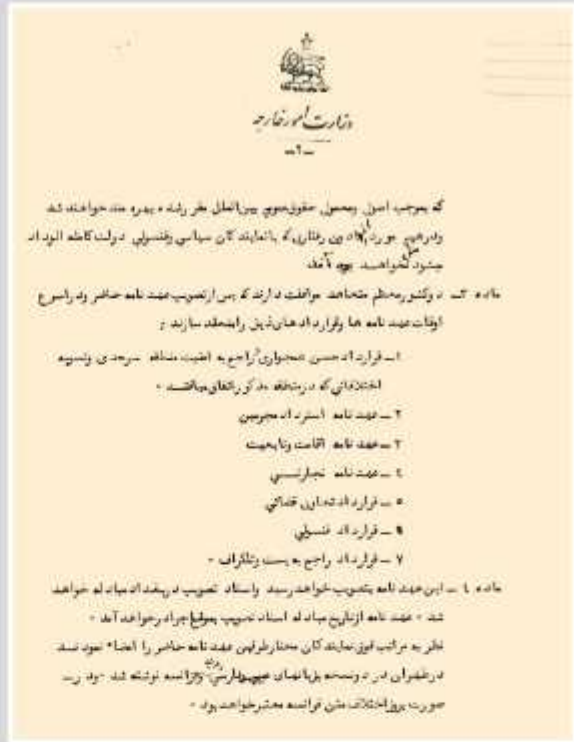 وزارت امور خارجه
ـ۲ـ
که بموجب اصول ومعمول حقوق عمومی بین‌الملل مقرر رشده بهره مند خواهند شد
ودرهیچ مورد دون رفتاری که بانمایندگان سیاسی وقنسولی دولت کاملة الوداد
میشود نخواهد بود
ماده ۳ـ دوکشورمعظم متعاهد موافقت دارند که پس ازتصویب عهد نامه حاضر ودراسرع
اوقات عهد نامه ها وقرارداد های ذیل رامنعقد سازند :
۱ـ قرارداد حسن همجواری راجع به امنیت منطقه سرحدی وتسویه
اختلافاتی که درمنطقه مذکور اتفاق میافتد ۰
۲ ـ عهد نامه استرداد مجرمین
۳ ـ عهد نامه اقامت وتابعیت
٤ ـ عهد نامه تجارتی
۵ ـ قرارداد تعاون قضائی
۶ ـ قرارداد قنسولی
۷ ـ قرارداد راجع به پست وتلگراف ۰
ماده ٤ ـ این عهد نامه بتصویب خواهد رسید واسناد تصویب دربغداد مبادله خواهد
شد ۰ عهد نامه ازتاریخ مبادله اسناد تصویب بموقع اجرا درخواهد آمد ۰
نظر به مراتب فوق نمایندگان مختارطرفین عهد نامه حاضر را امضاء نمودند
درطهران در دونسخه بزبانهای فارسی وفرانسه نوشته شد ودر
صورت بروز اختلاف متن فرانسه معتبرخواهد بود ۰